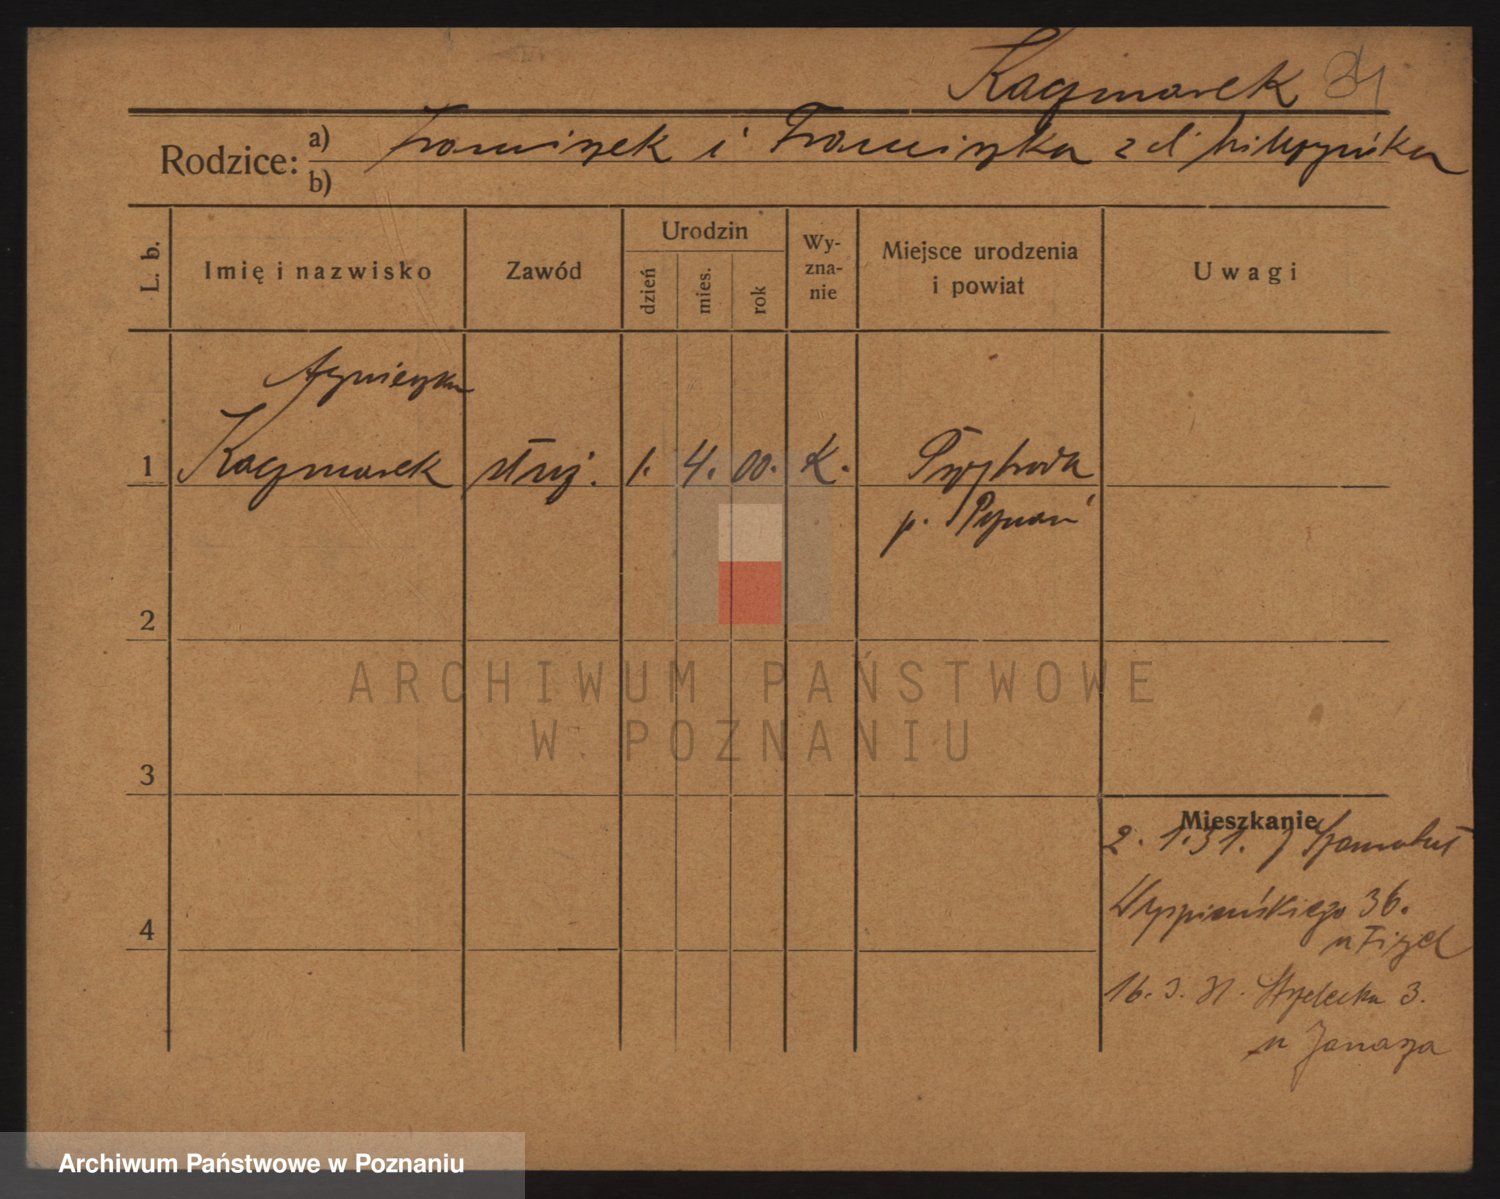 Kaczmarek 34
Rodzice: a) Franciszek i Franciszka z d.
b)
L. b. Imię i nazwisko Zawód Urodzin dzień mies. rok Wy-zna-nie Miejsce urodzenia i powiat Uwagi
Agnieszka
1 Kaczmarek służ. 1. 4. 00. K. Przybroda
p. Poznań
2
3
4
Mieszkanie
2. 1. 31. z Szamotuł
Wyspiańskiego 36.
u
16. 3. 31. Strzelecka 3.
u Janasza
ARCHIWUM PAŃSTWOWE
W POZNANIU
Archiwum Państwowe w Poznaniu